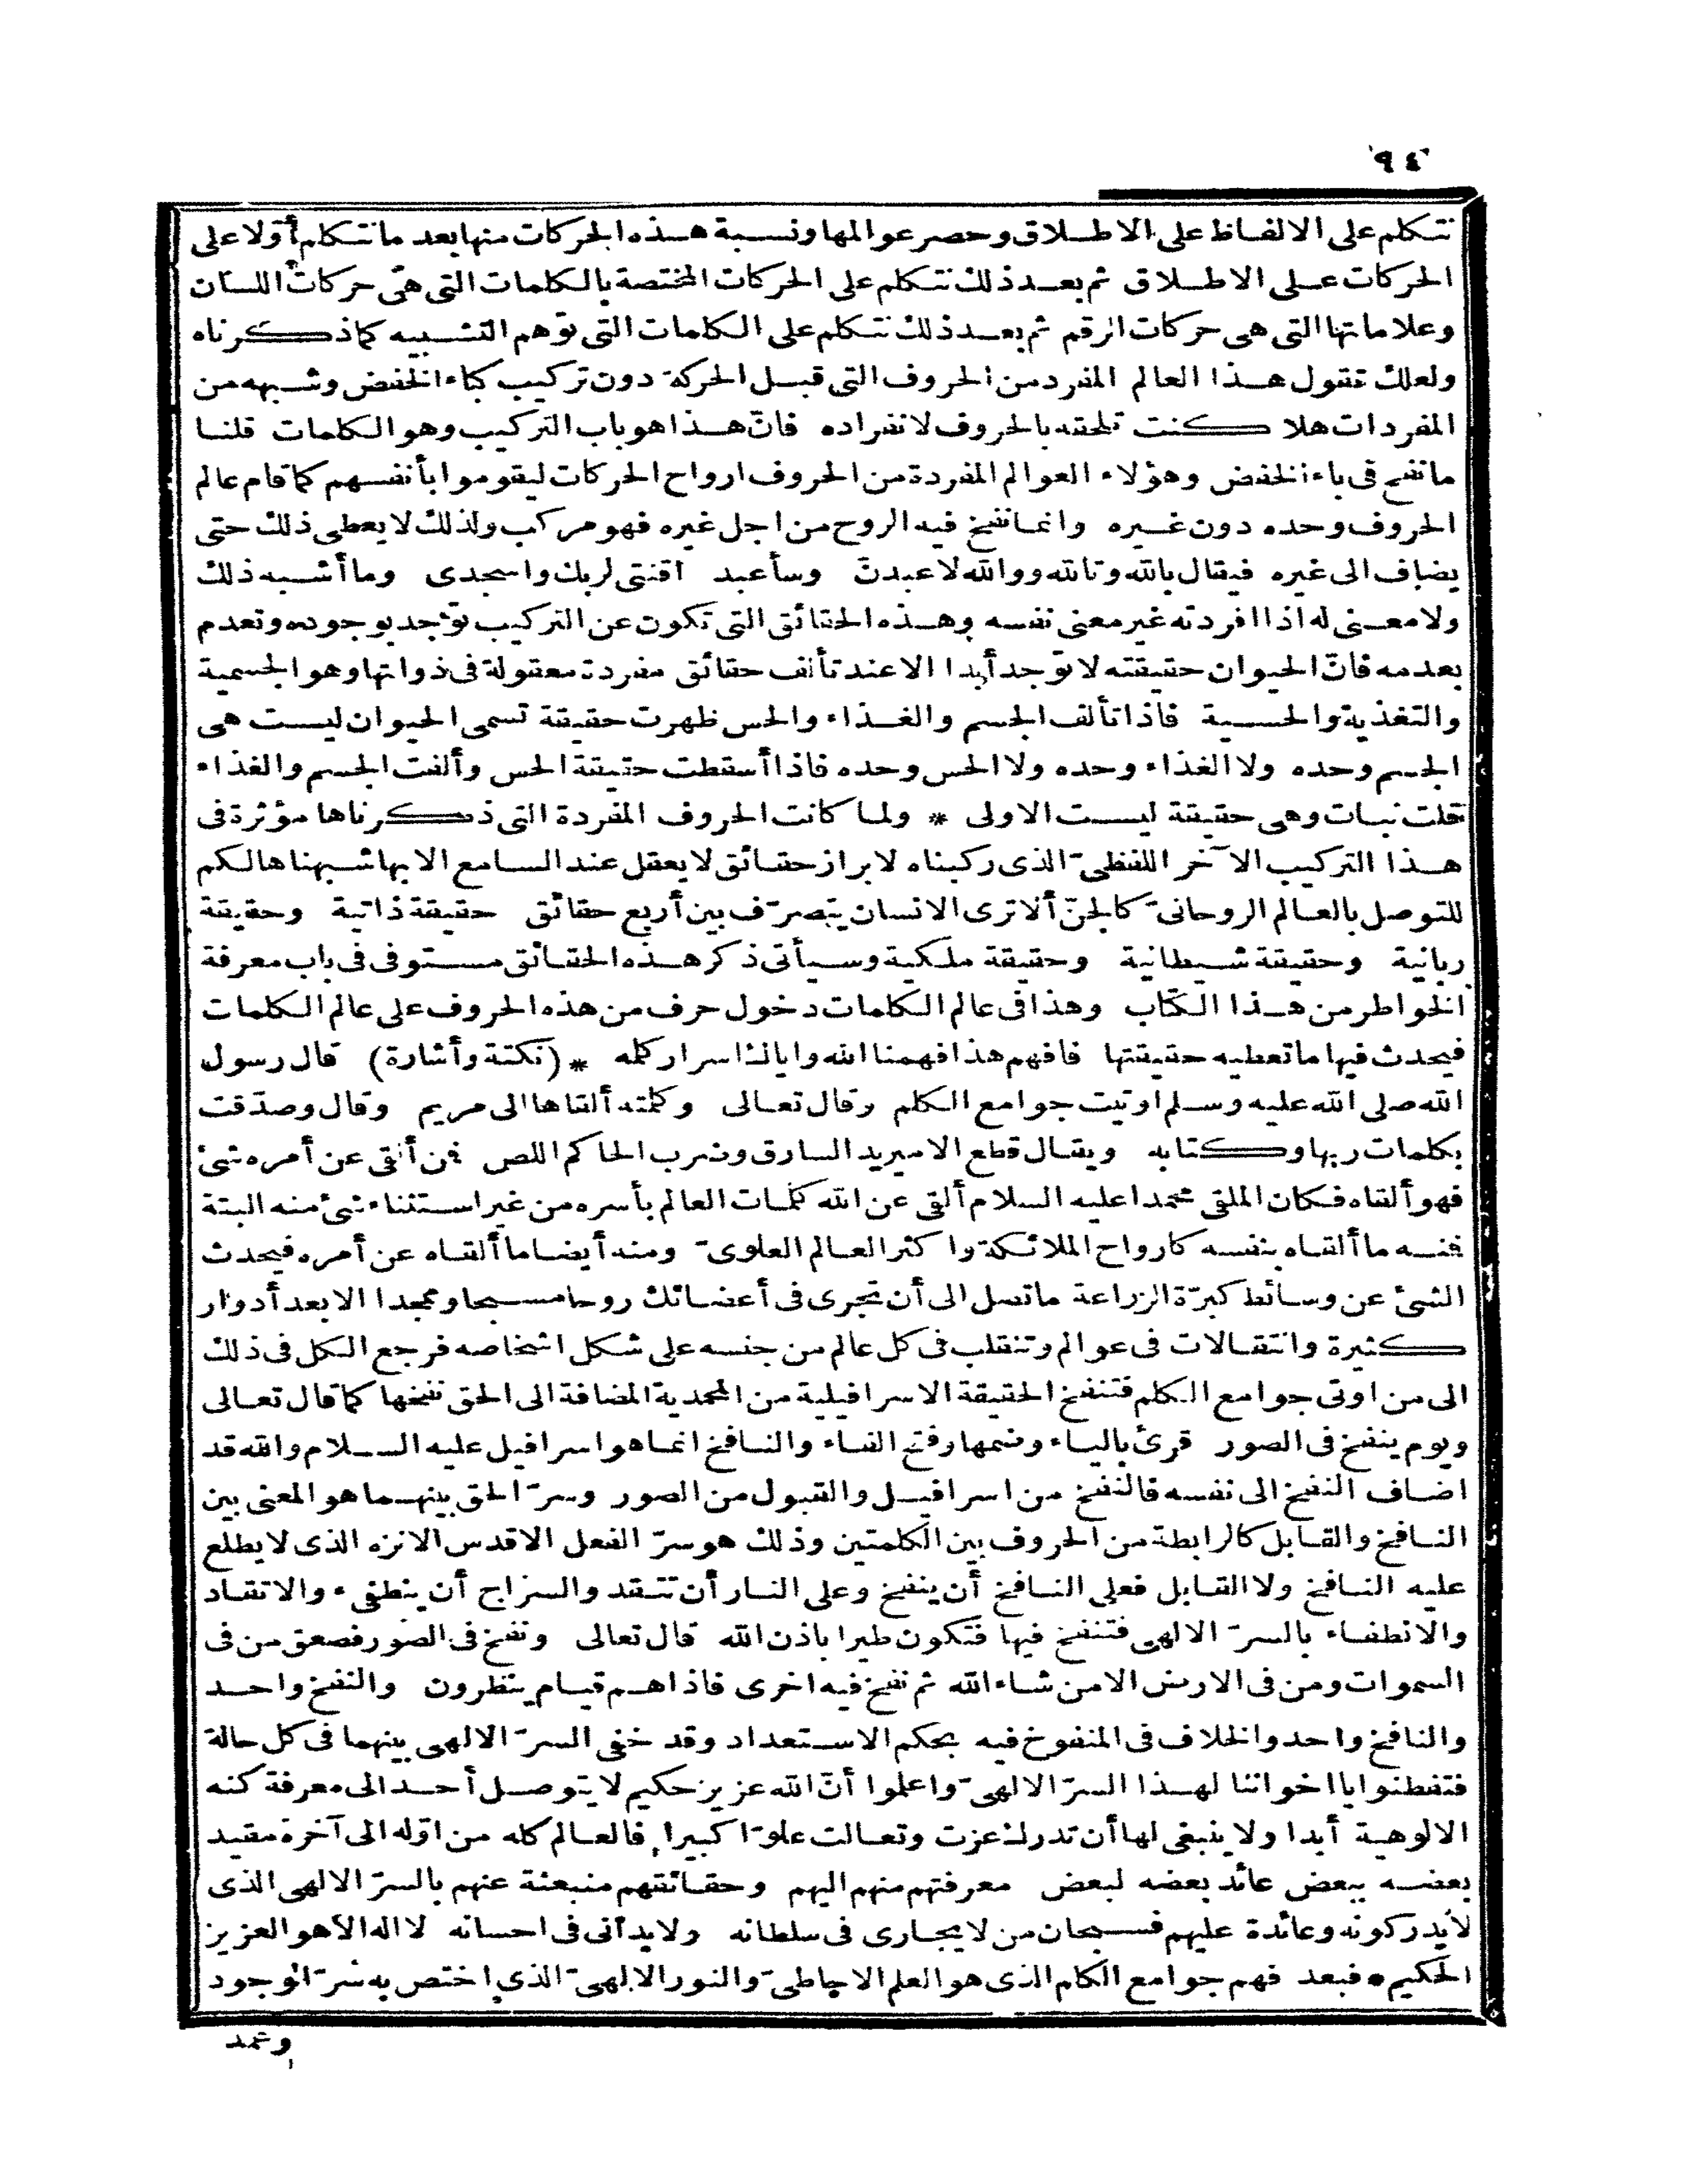 ٩٤
نتكلم على الالفاظ على الاطلاق وحصر عوالمها ونسبة هذه الحركات منها بعد ما نتكلم أولا على
الحركات على الاطلاق ثم بعد ذلك نتكلم على الحركات المختصة بالكلمات التى هى حركات اللسان
وعلاماتها التى هى حركات الرقم ثم بعد ذلك نتكلم على الكلمات التى توهم التشبيه كما ذكرناه
ولعلك تقول هذا العالم المفرد من الحروف التى قبل الحركة دون تركيب كباء الخفض وشبهه من
المفردات هلا كنت تلحقه بالحروف لانفراده فانّ هذا هو باب التركيب وهو الكلمات قلنا
ما نفخ فى باء الخفض وهؤلاء العوالم المفردة من الحروف ارواح الحركات ليقوموا بأنفسهم كما قام عالم
الحروف وحده دون غيره وانما نفخ فيه الروح من اجل غيره فهو مركب ولذلك لا يعطى ذلك حتى
يضاف الى غيره فيقال بالله وتالله ووالله لاعبدنّ وسأعبد اقنتى لربك واسجدى وما أشبه ذلك
ولا معنى له اذا افردته غير معنى نفسه وهذه الحقائق التى تكون عن التركيب توجد بوجوده وتعدم
بعدمه فانّ الحيوان حقيقته لا توجد أبدا الا عند تألف حقائق مفردة معقولة فى ذواتها وهو الجسمية
والتغذية والحسية فاذا تألف الجسم والغذاء والحس ظهرت حقيقة تسمى الحيوان ليست هى
الجسم وحده ولا الغذاء وحده ولا الحس وحده فاذا أسقطت حقيقة الحس وألفت الجسم والغذاء
قلت نبات وهى حقيقة ليست الاولى * ولما كانت الحروف المفردة التى ذكرناها مؤثرة فى
هذا التركيب الآخر اللفظىّ الذى ركبناه لابراز حقائق لا يعقل عند السامع الا بها شبهناها لكم
للتوصل بالعالم الروحانىّ كالجنّ ألا ترى الانسان يتصرّف بين أربع حقائق حقيقة ذاتية وحقيقة
ربانية وحقيقة شيطانية وحقيقة ملكية وسيأتى ذكر هذه الحقائق مستوفى فى باب معرفة
الخواطر من هذا الكتاب وهذا فى عالم الكلمات دخول حرف من هذه الحروف على عالم الكلمات
فيحدث فيها ما تعطيه حقيقتها فافهم هذا افهمنا الله واياك اسرار كلمه * (نكتة وأشارة) قال رسول
الله صلى الله عليه وسلم اوتيت جوامع الكلم وقال تعالى وكلمته ألقاها الى مريم وقال وصدّقت
بكلمات ربها وكتابه ويقال قطع الامير يد السارق وضرب الحاكم اللص فمن ألقى عن أمره شئ
فهو ألقاه فكان الملقى محمدا عليه السلام ألقى عن الله كلمات العالم بأسره من غير استثناء شئ منه البتة
فمنه ما ألقاه بنفسه كارواح الملائكة واكثر العالم العلوىّ ومنه أيضا ما ألقاه عن أمره فيحدث
الشئ عن وسائط كبرّة الزراعة ما تصل الى أن تجرى فى أعضائك روحا مسبحا وممجدا الا بعد أدوار
كثيرة وانتقالات فى عوالم وتنقلب فى كل عالم من جنسه على شكل اشخاصه فرجع الكل فى ذلك
الى من اوتى جوامع الكلم فتنفخ الحقيقة الاسرافيلية من المحمدية المضافة الى الحق نفخها كما قال تعالى
ويوم ينفخ فى الصور قرئ بالياء وضمها وفتح الفاء والنافخ انما هو اسرافيل عليه السلام والله قد
اضاف النفخ الى نفسه فالنفخ من اسرافيل والقبول من الصور وسرّ الحق بينهما هو المعنى بين
النافخ والقابل كالرابطة من الحروف بين الكلمتين وذلك هو سرّ الفعل الاقدس الانزه الذى لا يطلع
عليه النافخ ولا القابل فعلى النافخ أن ينفخ وعلى النار أن تتقد والسراج أن ينطفىء والاتقاد
والانطفاء بالسرّ الالهى فتنفخ فيها فتكون طيرا باذن الله قال تعالى ونفخ فى الصور فصعق من فى
السموات ومن فى الارض الا من شاء الله ثم نفخ فيه اخرى فاذا هم قيام ينظرون والنفخ واحد
والنافخ واحد والخلاف فى المنفوخ فيه بحكم الاستعداد وقد خفى السرّ الالهى بينهما فى كل حالة
فتفطنوا يا اخواننا لهذا السرّ الالهىّ واعلموا أنّ الله عزيز حكيم لا يتوصل أحد الى معرفة كنه
الالوهية أبدا ولا ينبغى لها أن تدرك عزت وتعالت علوّا كبيرا فالعالم كله من اوّله الى آخره مقيد
بعضه ببعض عائد بعضه لبعض معرفتهم منهم اليهم وحقائقهم منبعثة عنهم بالسرّ الالهى الذى
لا يدركونه وعائدة عليهم فسبحان من لا يجارى فى سلطانه ولا يدانى فى احسانه لا اله الا هو العزيز
الحكيم * فبعد فهم جوامع الكلم الذى هو العلم الاحاطىّ والنور الالهىّ الذى اختص به سرّ الوجود
وعمد